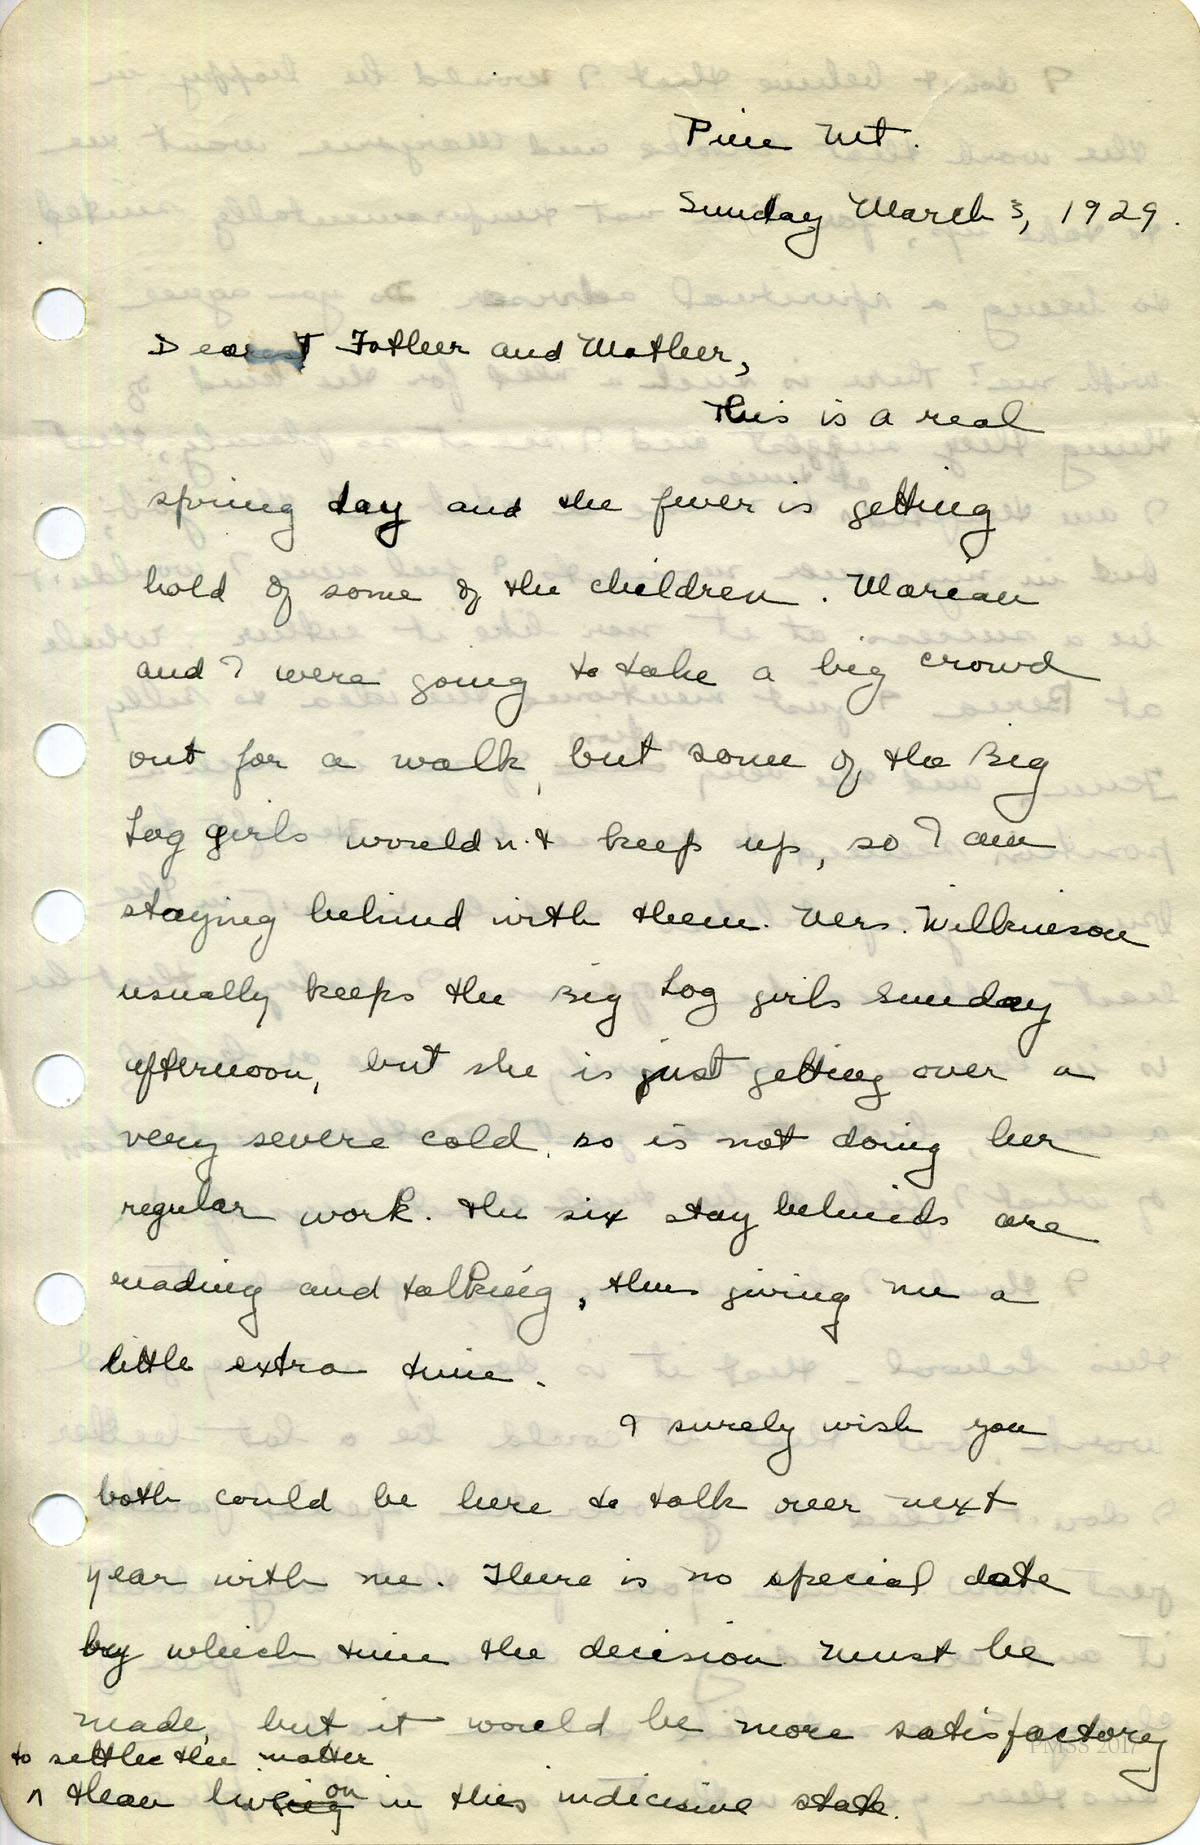 Pine Mt.
Sunday March 3, 1929.
Dearest Father and Mother,
This is a real
spring day and the fever is getting
hold of some of the children. Marian
and I were going to take a big crowd
out for a walk, but some of the Big
Log girls wouldn't keep up, so I am
staying behind with them. Mrs. Wilkinson
usually keeps the Big Log girls Sunday
afternoon, but she is just getting over a
very severe cold, so is not doing her
regular work. The six stay behinds are
reading and talking, thus giving me a
little extra time.
I surely wish you
both could be here to talk over next
year with me. There is no special date
by which time the decision must be
made, but it would be more satisfactory
to settle the matter
^ than living on in this indicisive state.
PMSS 2017